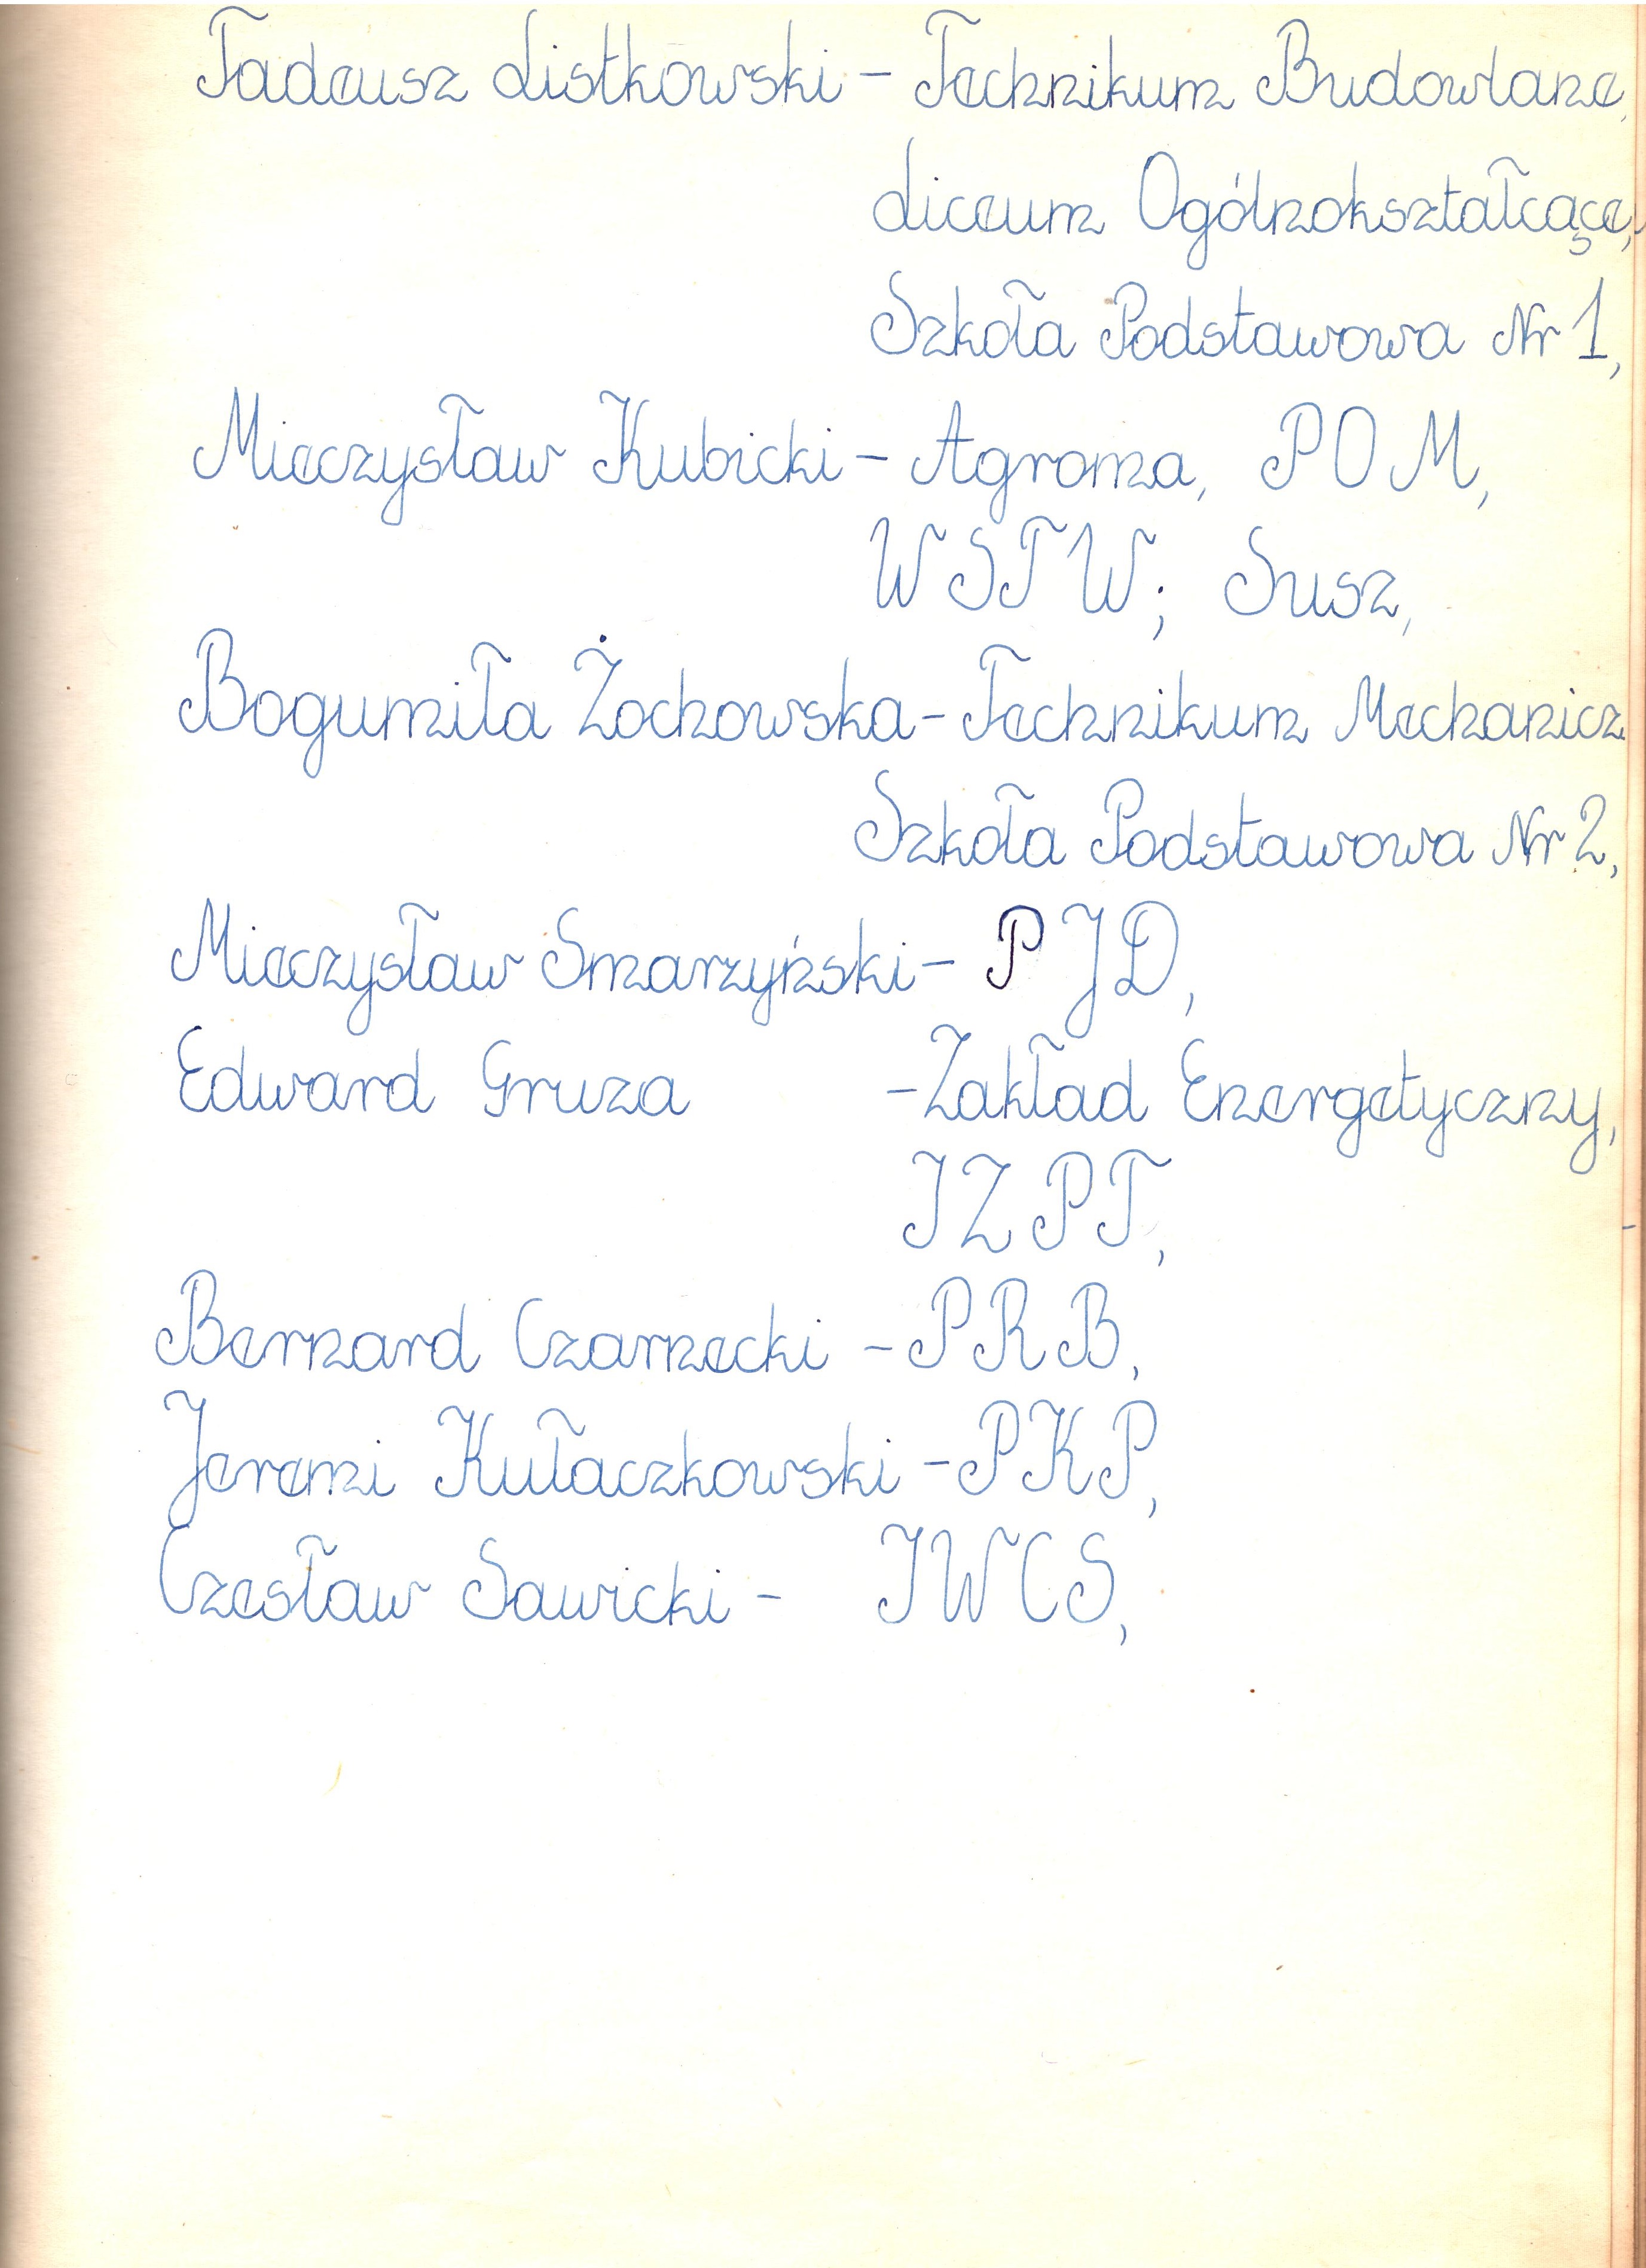 Tadeusz Listkowski - Technikum Budowlane,
Liceum Ogólnokształcące,
Szkoła Podstawowa Nr 1,
Mieczysław Kubicki - Agroma, POM,
WSTW; Susz,
Bogumiła Żochowska - Technikum Mechanicz.
Szkoła Podstawowa Nr 2,
Mieczysław Smarzyński - PJD,
Edward Gruza - Zakład Energetyczny,
IZPT,
Bernard Czarnecki - PRB,
Jeremi Kułaczkowski - PKP,
Czesław Sawicki - IWCS,